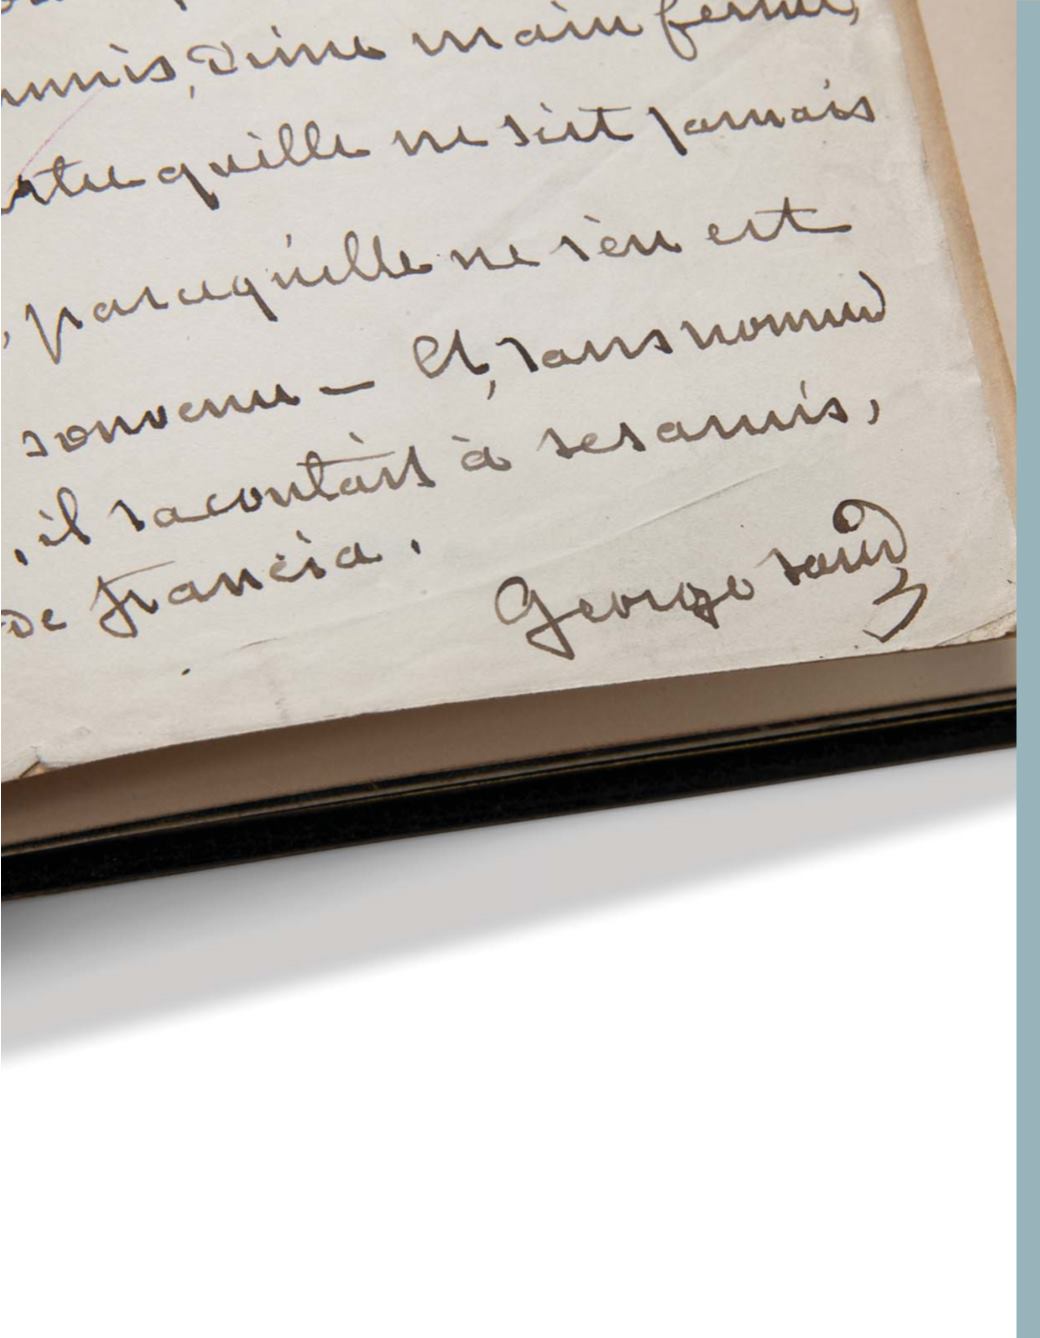 d'une main ferme,
qu'elle ne s'est jamais
, parce qu'elle ne s'en est
souvenue — Et, sans nommer
, il racontait à ses amis,
de Francia.
George Sand